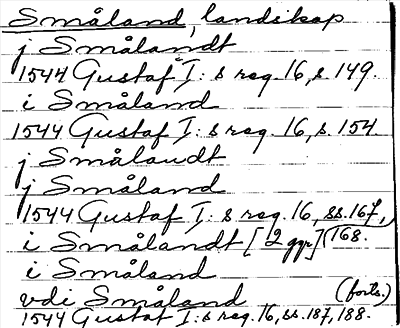 Småland, landskap
j Smålandt
1544 Gustaf I:s reg. 16, s. 149.
i Småland
1544 Gustaf I:s reg. 16, s. 154
j Smålandt
j Småland
1544 Gustaf I:s reg. 16, ss. 167,
i Smålandt [2 ggr] (168.
i Småland
vdi Småland (forts.)
1544 Gustaf I:s reg. 16, ss. 187, 188.